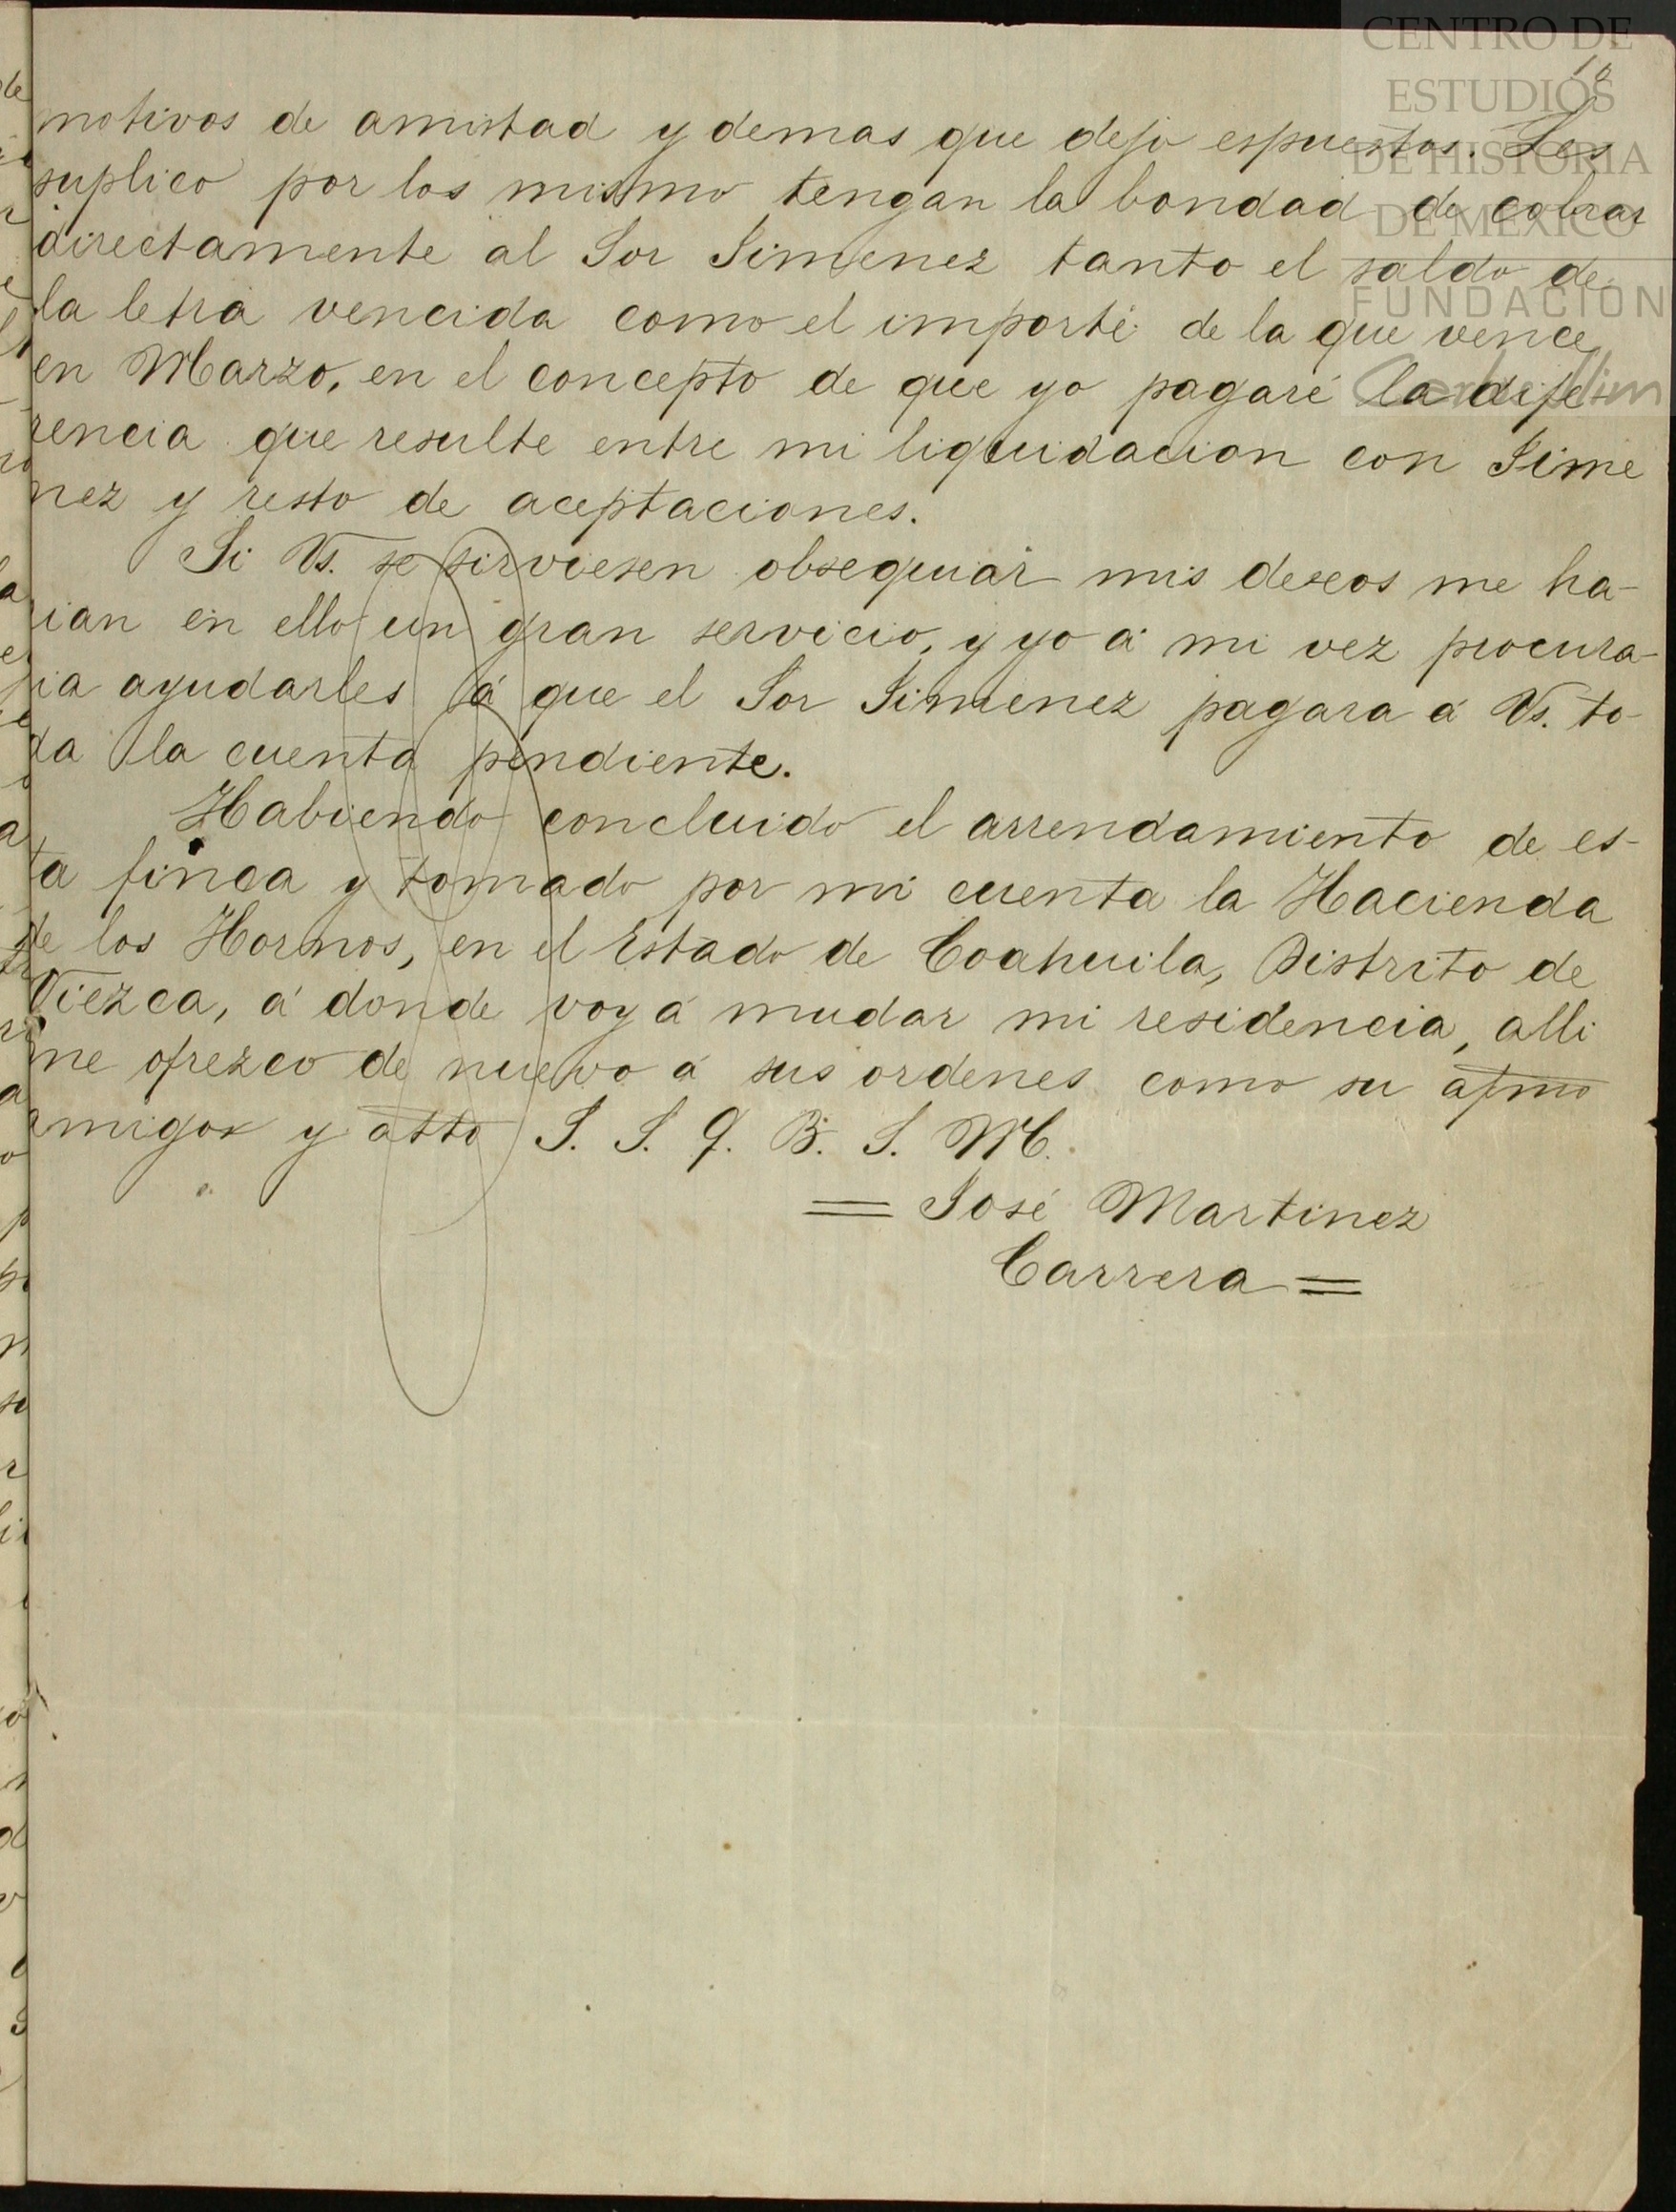 CENTRO DE
ESTUDIOS
DE HISTORIA
DE MÉXICO
FUNDACIÓN
Carlos Slim
motivos de amistad y demas que dejo espuestos. Les
suplico por los mismo tengan la bondad de cobrar
directamente al Sor Jimenez tanto el saldo de
la letra vencida como el importe de la que vence
en Marzo, en el concepto de que yo pagaré la dife-
rencia que resulte entre mi liquidacion con Jime
nez y resto de aceptaciones.
Si Vs. se sirviesen obsequiar mis deseos me ha-
rian en ello un gran servicio, y yo á mi vez procura-
ria ayudarles á que el Sor Jimenez pagara á Vs. to-
da la cuenta pendiente.
Habiendo concluido el arrendamiento de es-
ta finca y tomado por mi cuenta la Hacienda
de los Hornos, en el Estado de Coahuila, Distrito de
Viezca, á donde voy á mudar mi residencia, alli
me ofrezco de nuevo á sus ordenes como su afmo
amigo y atto S. S. q. B. S. M.
= José Martinez
Carrera =